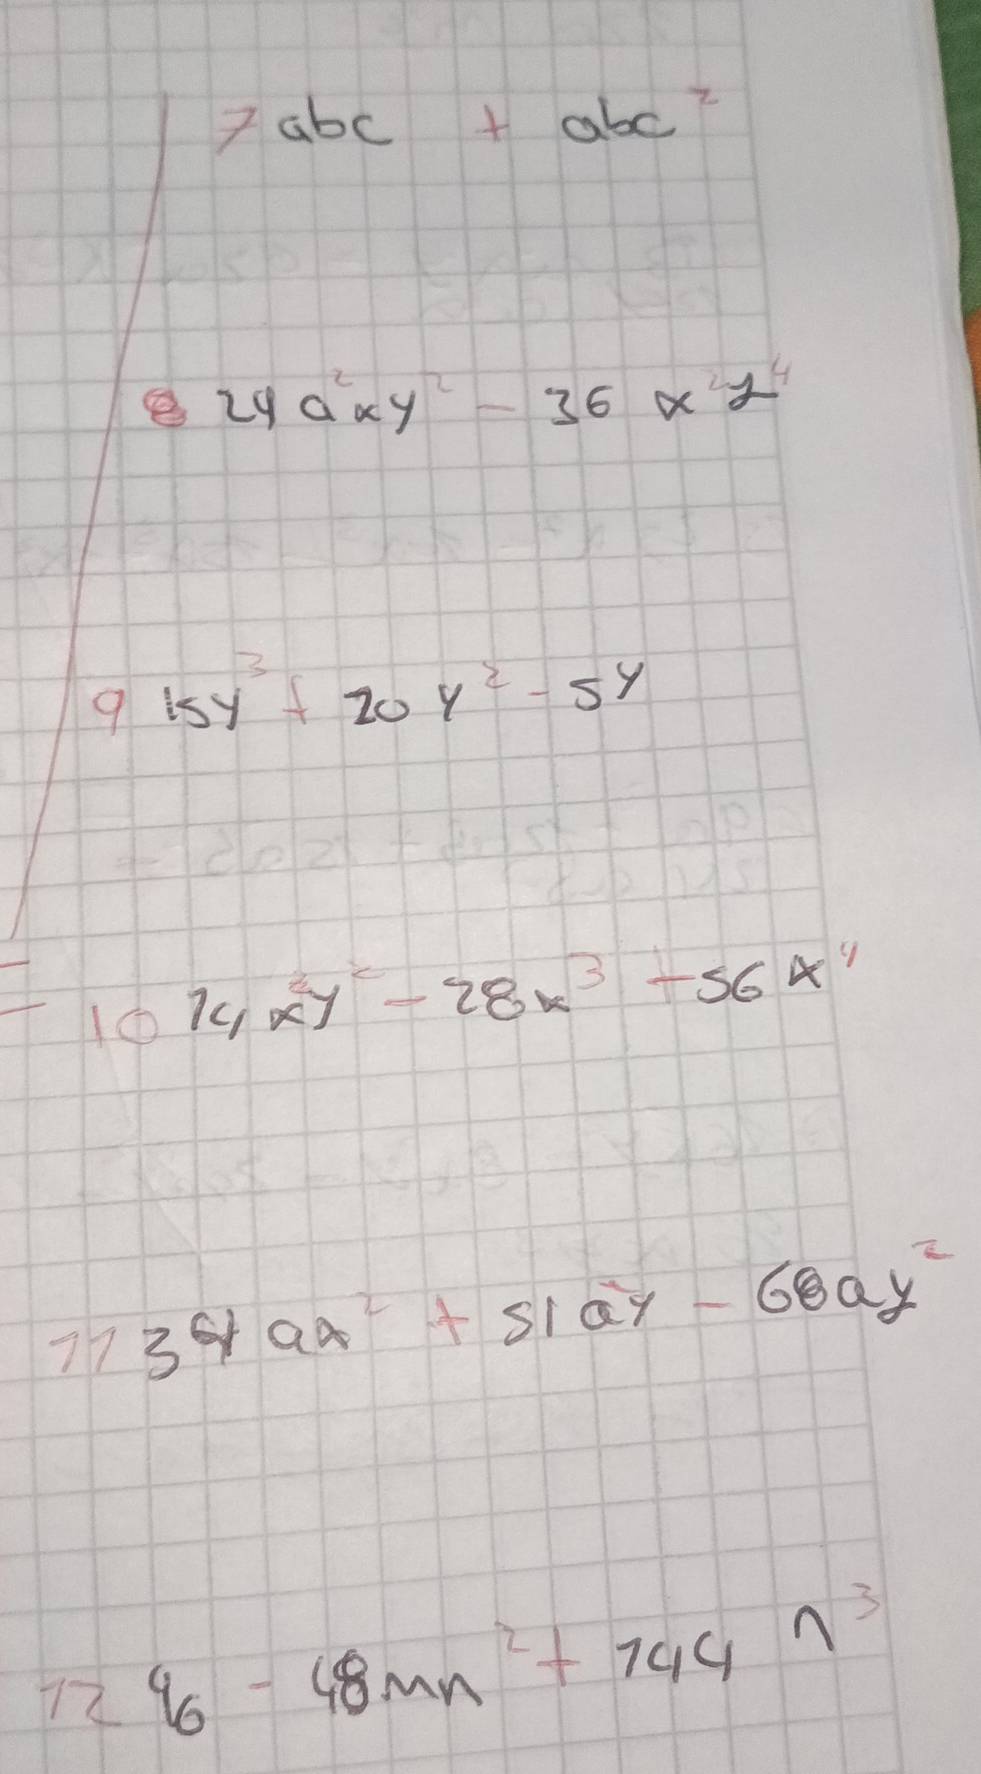 7 abc + abc²
8 24a²xy² - 36x²y⁴
9 15y³ + 20y² - 5y
10 14x²y² - 28x³ + 56x⁴
11 34ax² + 51a²y - 68ay²
12 96 - 48mn² + 144n³